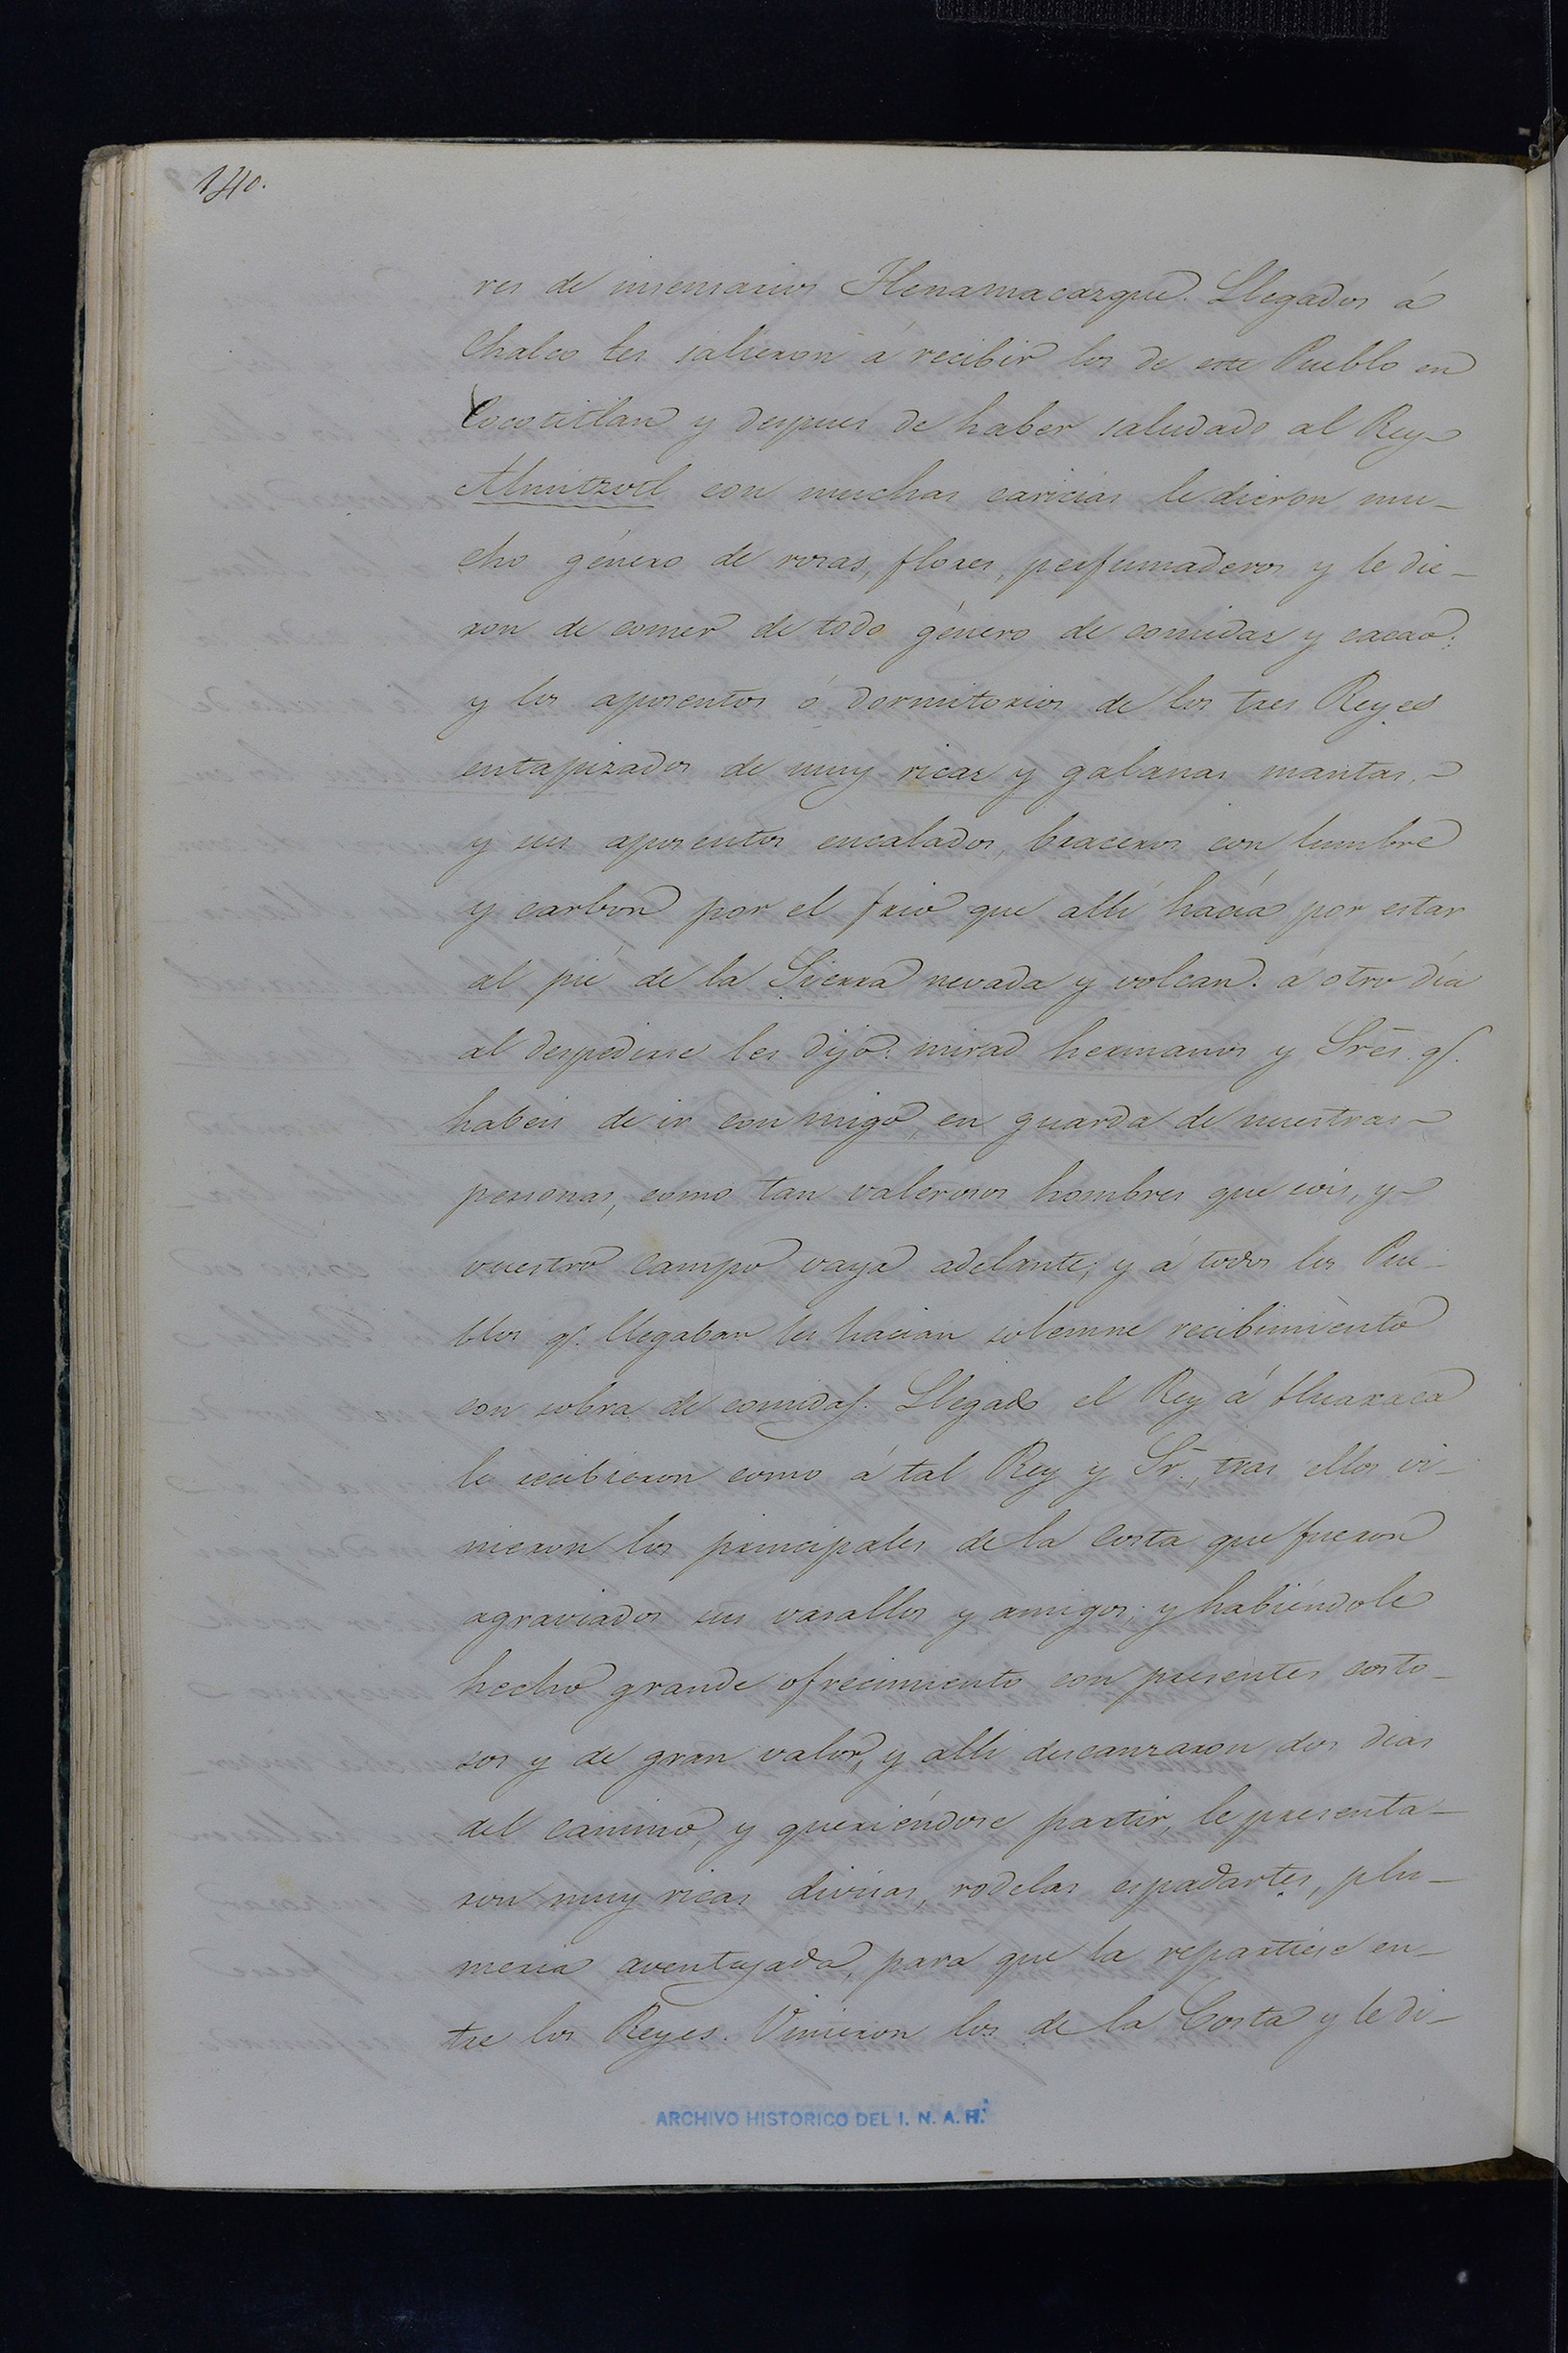 140.
res de insensarios Tlenamacazque. Llegados á
Chalco les salieron á recibir los de este Pueblo en
Cocotitlan y despues de haber saludado al Rey
Ahuitzotl con muchas caricias le dieron mu-
cho género de rosas, flores, perfumaderos y le die-
ron de comer de todo género de comidas y cacao:
y los aposentos ó dormitorios de los tres Reyes
entapizados de muy ricas y galanas mantas,
y sus aposentos encalados, braceros con lumbre
y carbon por el frio que allí hacía por estar
al pié de la Sierra nevada y volcan: á otro día
al despedirse les dijo: mirad hermanos y Sres. q.
habeis de ir con migo, en guarda de nuestras
personas, como tan valerosos hombres que sois, y
vuestro campo vaya adelante; y á todos los Pue-
blos q. llegaban les hacian solemne recibimiento
con sobra de comidas. Llegado el Rey á Huaxaca
le recibieron como á tal Rey y Sr., tras ellos vi-
nieron los principales de la Costa que fueron
agraviados sus vasallos y amigos; y habiéndole
hecho grande ofrecimiento con presentes costo-
sos y de gran valor, y alli descanzaron dos dias
del camino, y queriéndose partir, le presenta-
ron muy ricas divisas, rodelas espadartes, plu-
meria aventajada, para que la repartiese en-
tre los Reyes. Vinieron los de la Costa y le di-
ARCHIVO HISTORICO DEL I. N. A. H.